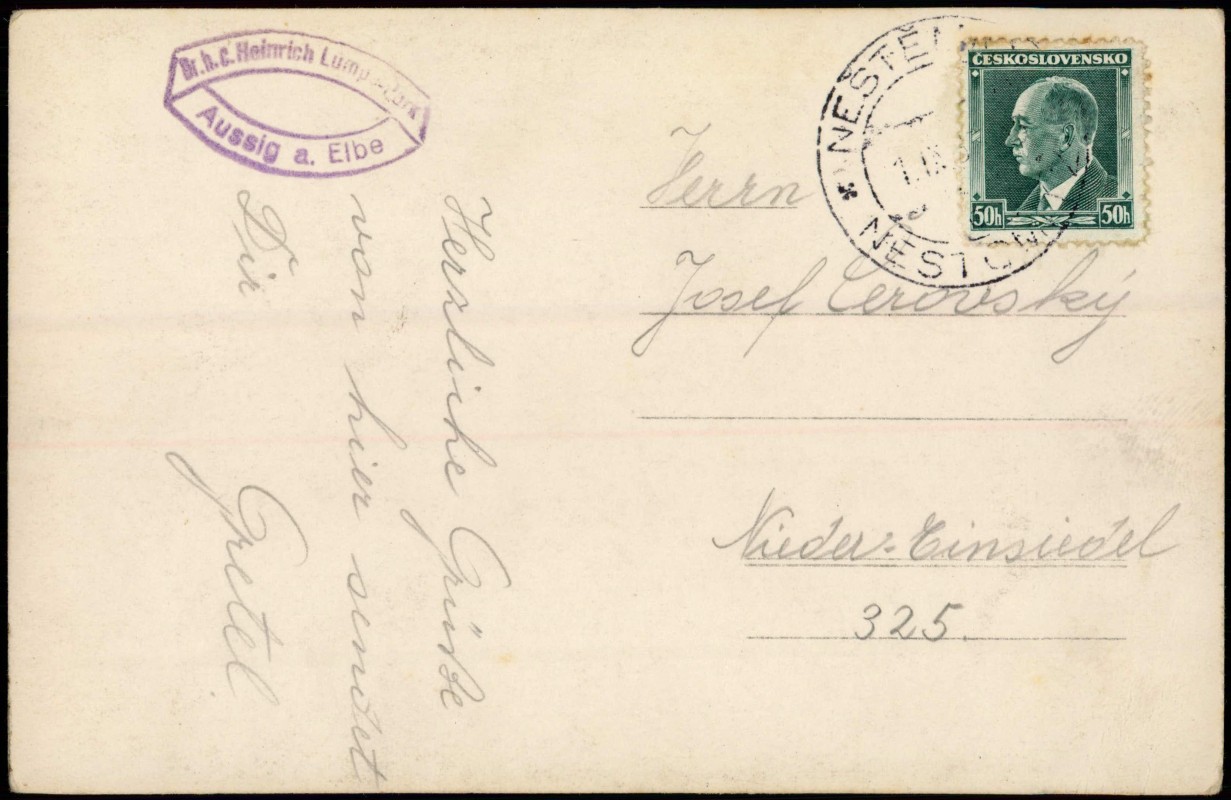 Dr. h. c. Heinrich Lumpe-Park
Aussig a. Elbe
Herzliche Grüße
von hier sendet
Dir Gretel.
NESTOM
1. IX.
ČESKOSLOVENSKO
50h 50h
Herrn
Josef Cerovský
Nieder-Einsiedel
325.